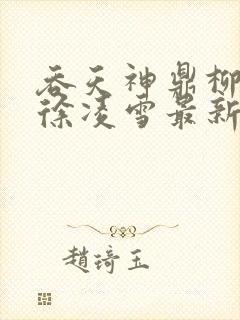 吞天神鼎柳
徐凌雪最新
趙琦玉